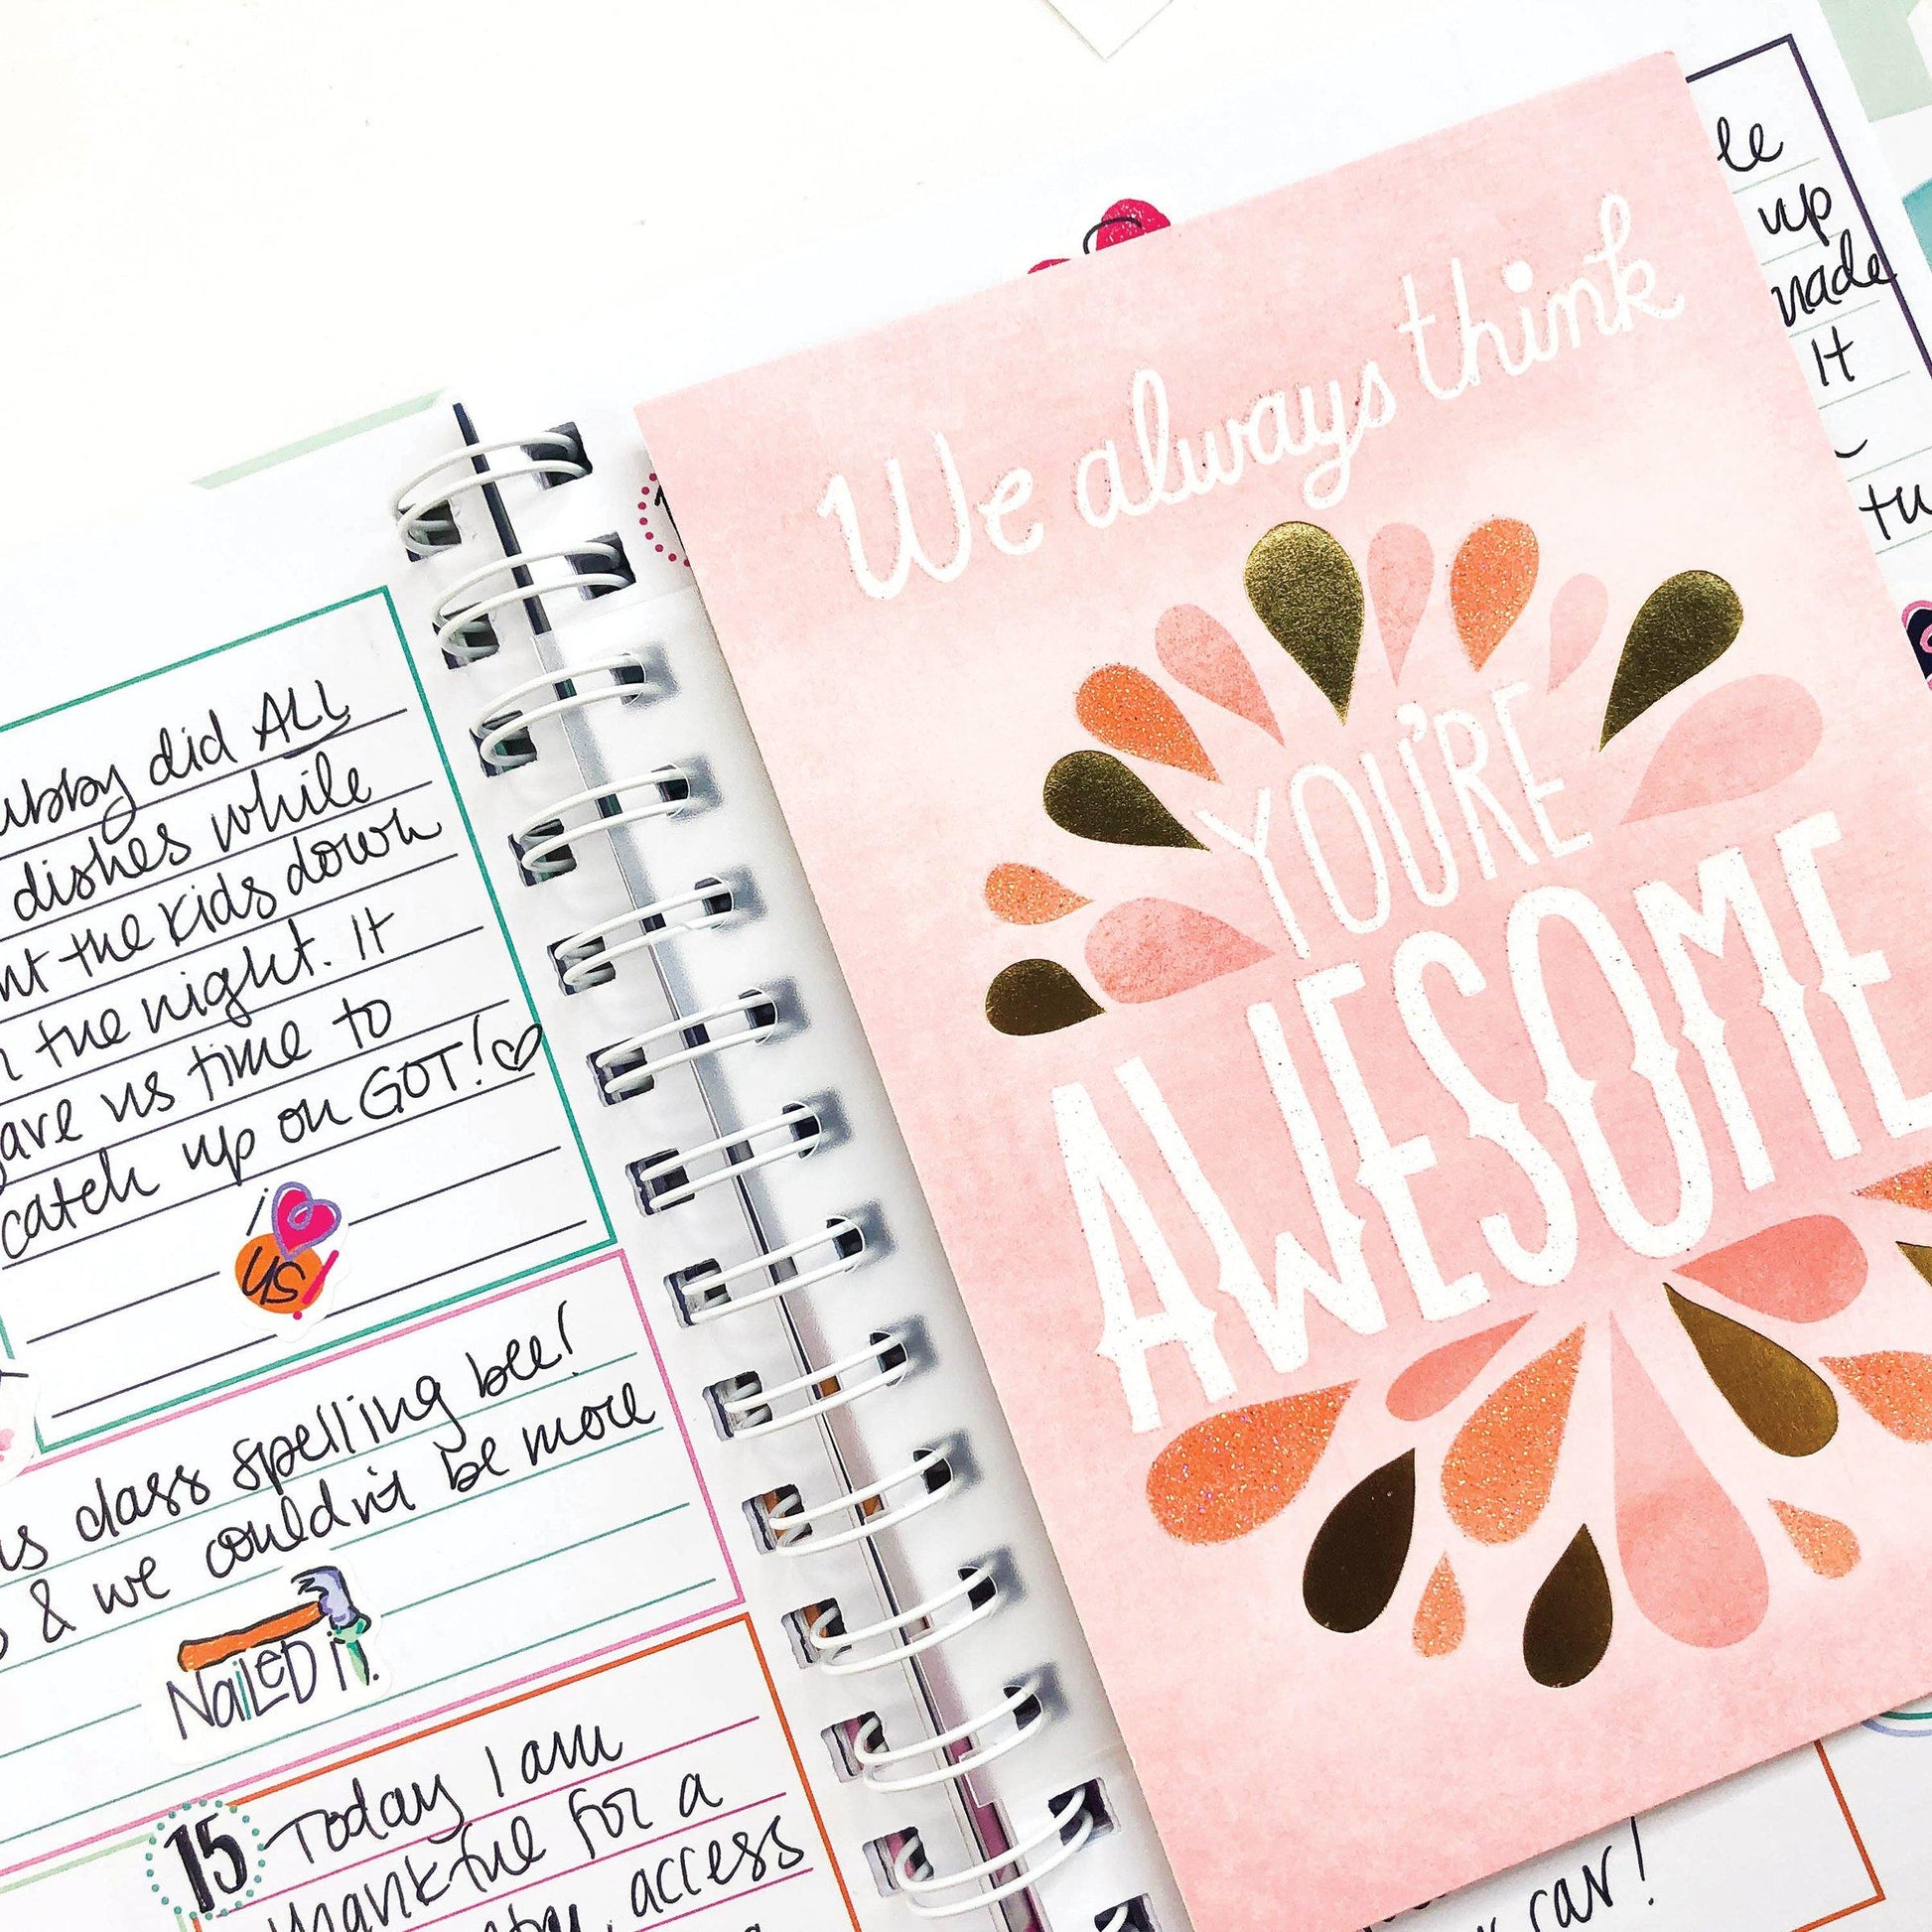 ubby did ALL
dishes while
nt the kids down
n the night. It
ave us time to
catch up on GOT! ♡
i
us!
is class spelling bee!
& we couldn't be more
NaiLeD iT.
15 Today I am
thankful for a
access
We always think
YOU'RE
AWESOME
le
up
made
It
tu
car!